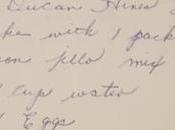 Ducan Hines
ke with 1 pack
on jello mix
cup water
Eggs